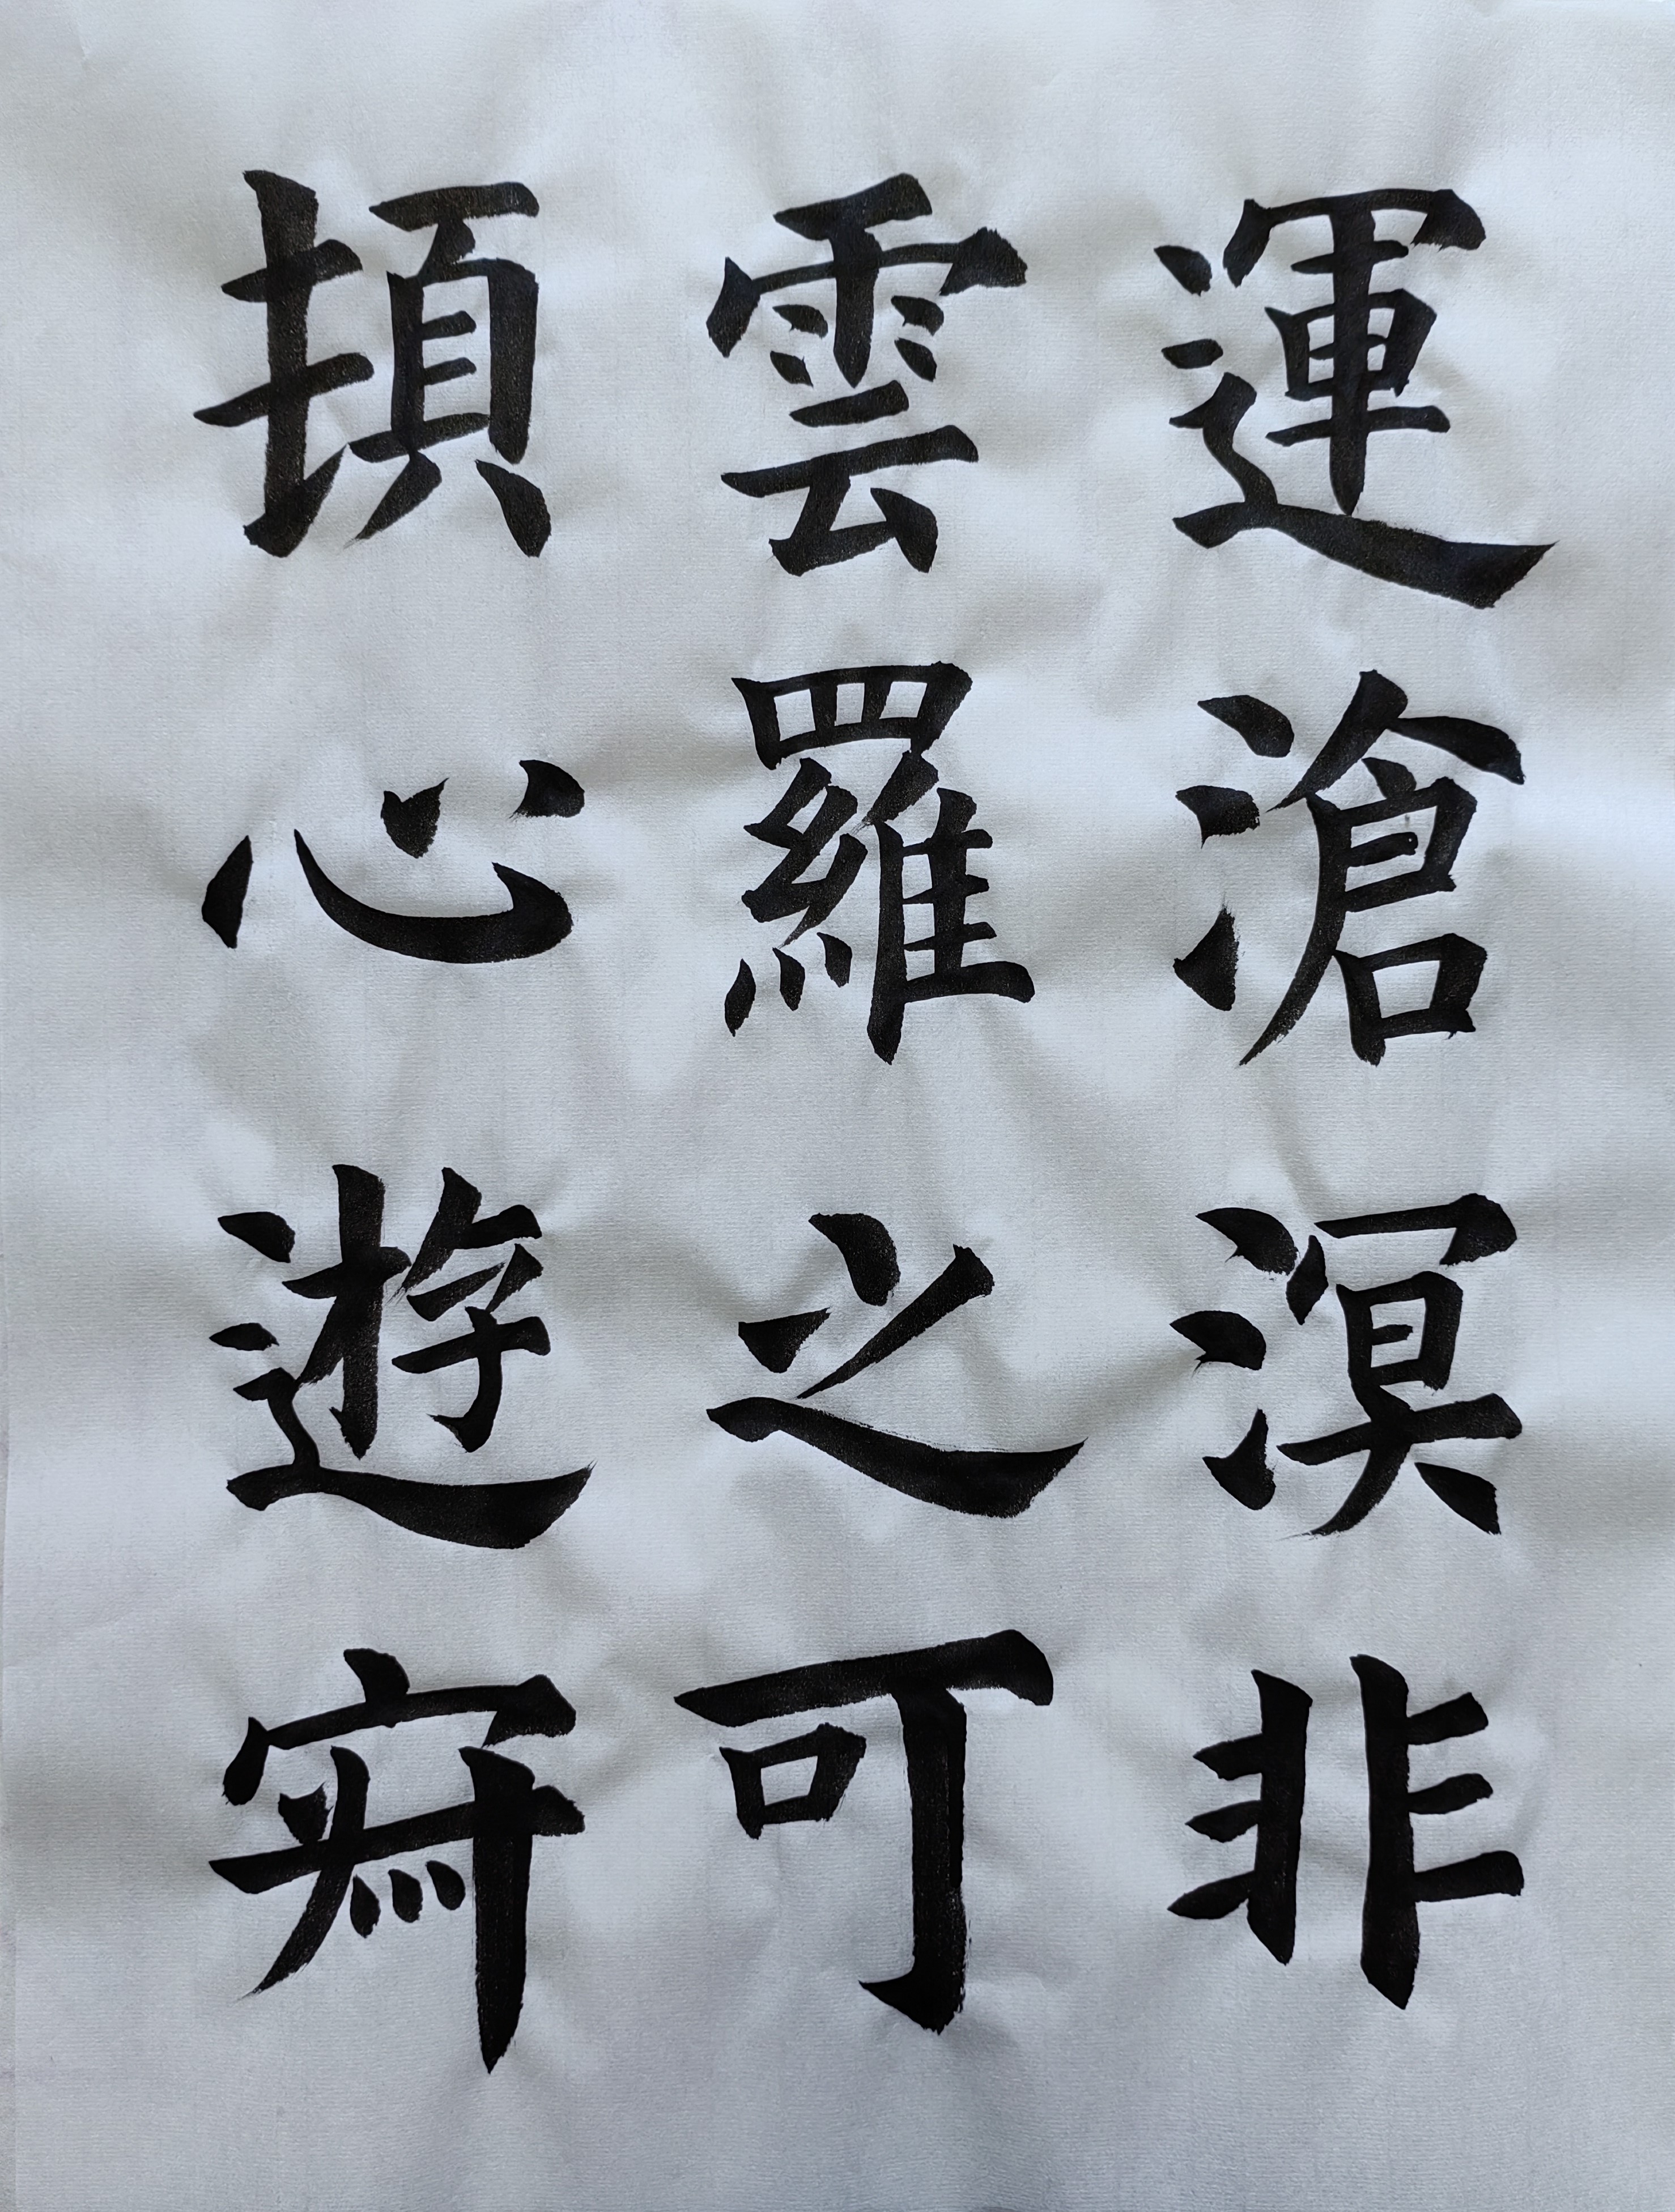 運滄溟非
雲羅之可
頓心遊寂